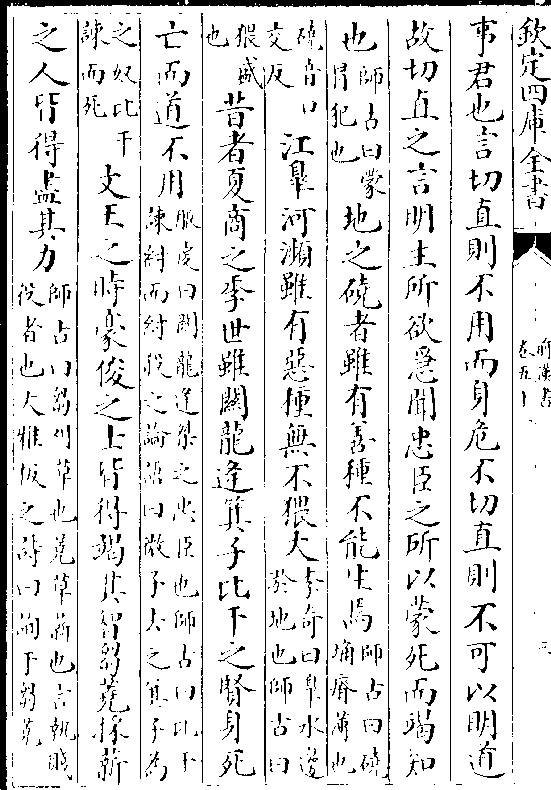 欽定四庫全書
前漢書
卷五十一
事君也言切直則不用而身危不切直則不可以明道
故切直之言明主所欲急聞忠臣之所以蒙死而竭知
也師古曰蒙冒犯也地之磽者雖有善種不能生焉師古曰磽确瘠薄也
磽音口交反江臯河瀕雖有惡種無不猥大李奇曰臯水邊於地也師古曰
猥盛也昔者夏商之季世雖關龍逢箕子比干之賢身死
亡而道不用服虔曰關龍逢桀之忠臣也師古曰比干諫紂而紂殺之論語曰微子去之箕子為
之奴比干諫而死文王之時豪俊之士皆得竭其智芻蕘採薪
之人皆得盡其力師古曰芻刈草也蕘草薪也言執賤役者也大雅板之詩曰詢于芻蕘